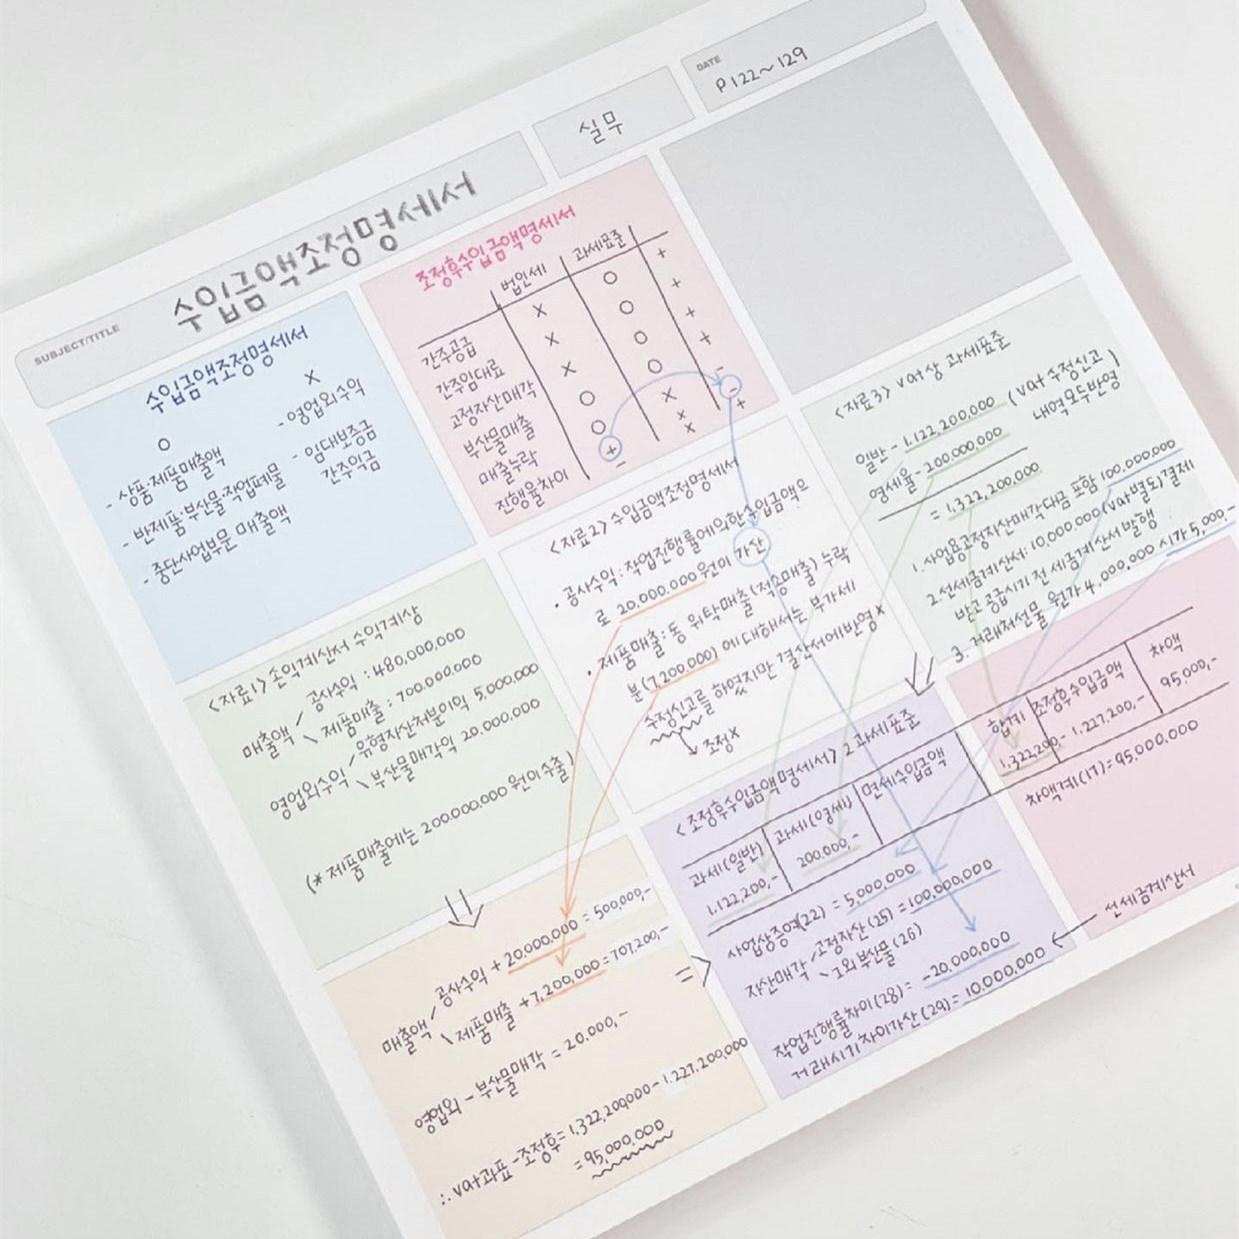 SUBJECT/TITLE
수입금액조정명세서
실무
DATE
P122~129
수입금액조정명세서
O
- 상품·제품매출액
- 반제품·부산물·작업폐물
- 중단사업부문 매출액
X
- 영업외수익
- 임대보증금
간주익금
조정후수입금액명세서
법인세 과세표준
간주공급 X O +
간주임대료 X O +
고정자산매각 X O +
부산물매출 O O +
매출누락 O X -
진행율차이 + X -
- X +
<자료1> 손익계산서 수익계상
매출액 / 공사수익 : 480,000,000
\ 제품매출 : 700,000,000
영업외수익 / 유형자산처분이익 5,000,000
\ 부산물매각익 20,000,000
(* 제품매출에는 200,000,000 원이 수출)
<자료2> 수입금액조정명세서
· 공사수익 : 작업진행률에의한수입금액으
로 20,000,000원이 가산
· 제품매출 : 동 위탁매출(적송매출) 누락
분(7,200,000)에 대해서는 부가세
수정신고를 하였지만 결산서에반영X
↳ 조정X
<자료3> vat상 과세표준
일반 - 1,122,200,000 (vat 수정신고
영세율 - 200,000,000 내역모두반영)
= 1,322,200,000
1. 사업용고정자산매각대금 포함 100,000,000
2. 선세금계산서: 10,000,000(vat별도)결제
받고 공급시기 전 세금계산서 발행
3. 거래처선물 원가 4,000,000 시가 5,000,-
매출액 / 공사수익 + 20,000,000 = 500,000,-
\ 제품매출 + 7,200,000 = 707,200,-
영업외 - 부산물매각 = 20,000,-
∴ vat과표 - 조정후 = 1,322,200,000 - 1,227,200,000
= 95,000,000
<조정후수입금액명세서> 2.과세표준
과세(일반) 과세(영세) 면세수입금액
1,122,200,- 200,000,-
사업상증여(22) = 5,000,000
자산매각 / 고정자산(25) = 100,000,000
\ 그외부산물(26)
작업진행률차이(28) = -20,000,000
거래시기차이가산(29) = 10,000,000 ← 선세금계산서
합계 조정후수입금액 차액
1,322,200,- 1,227,200,- 95,000,-
차액계(17) = 95,000,000